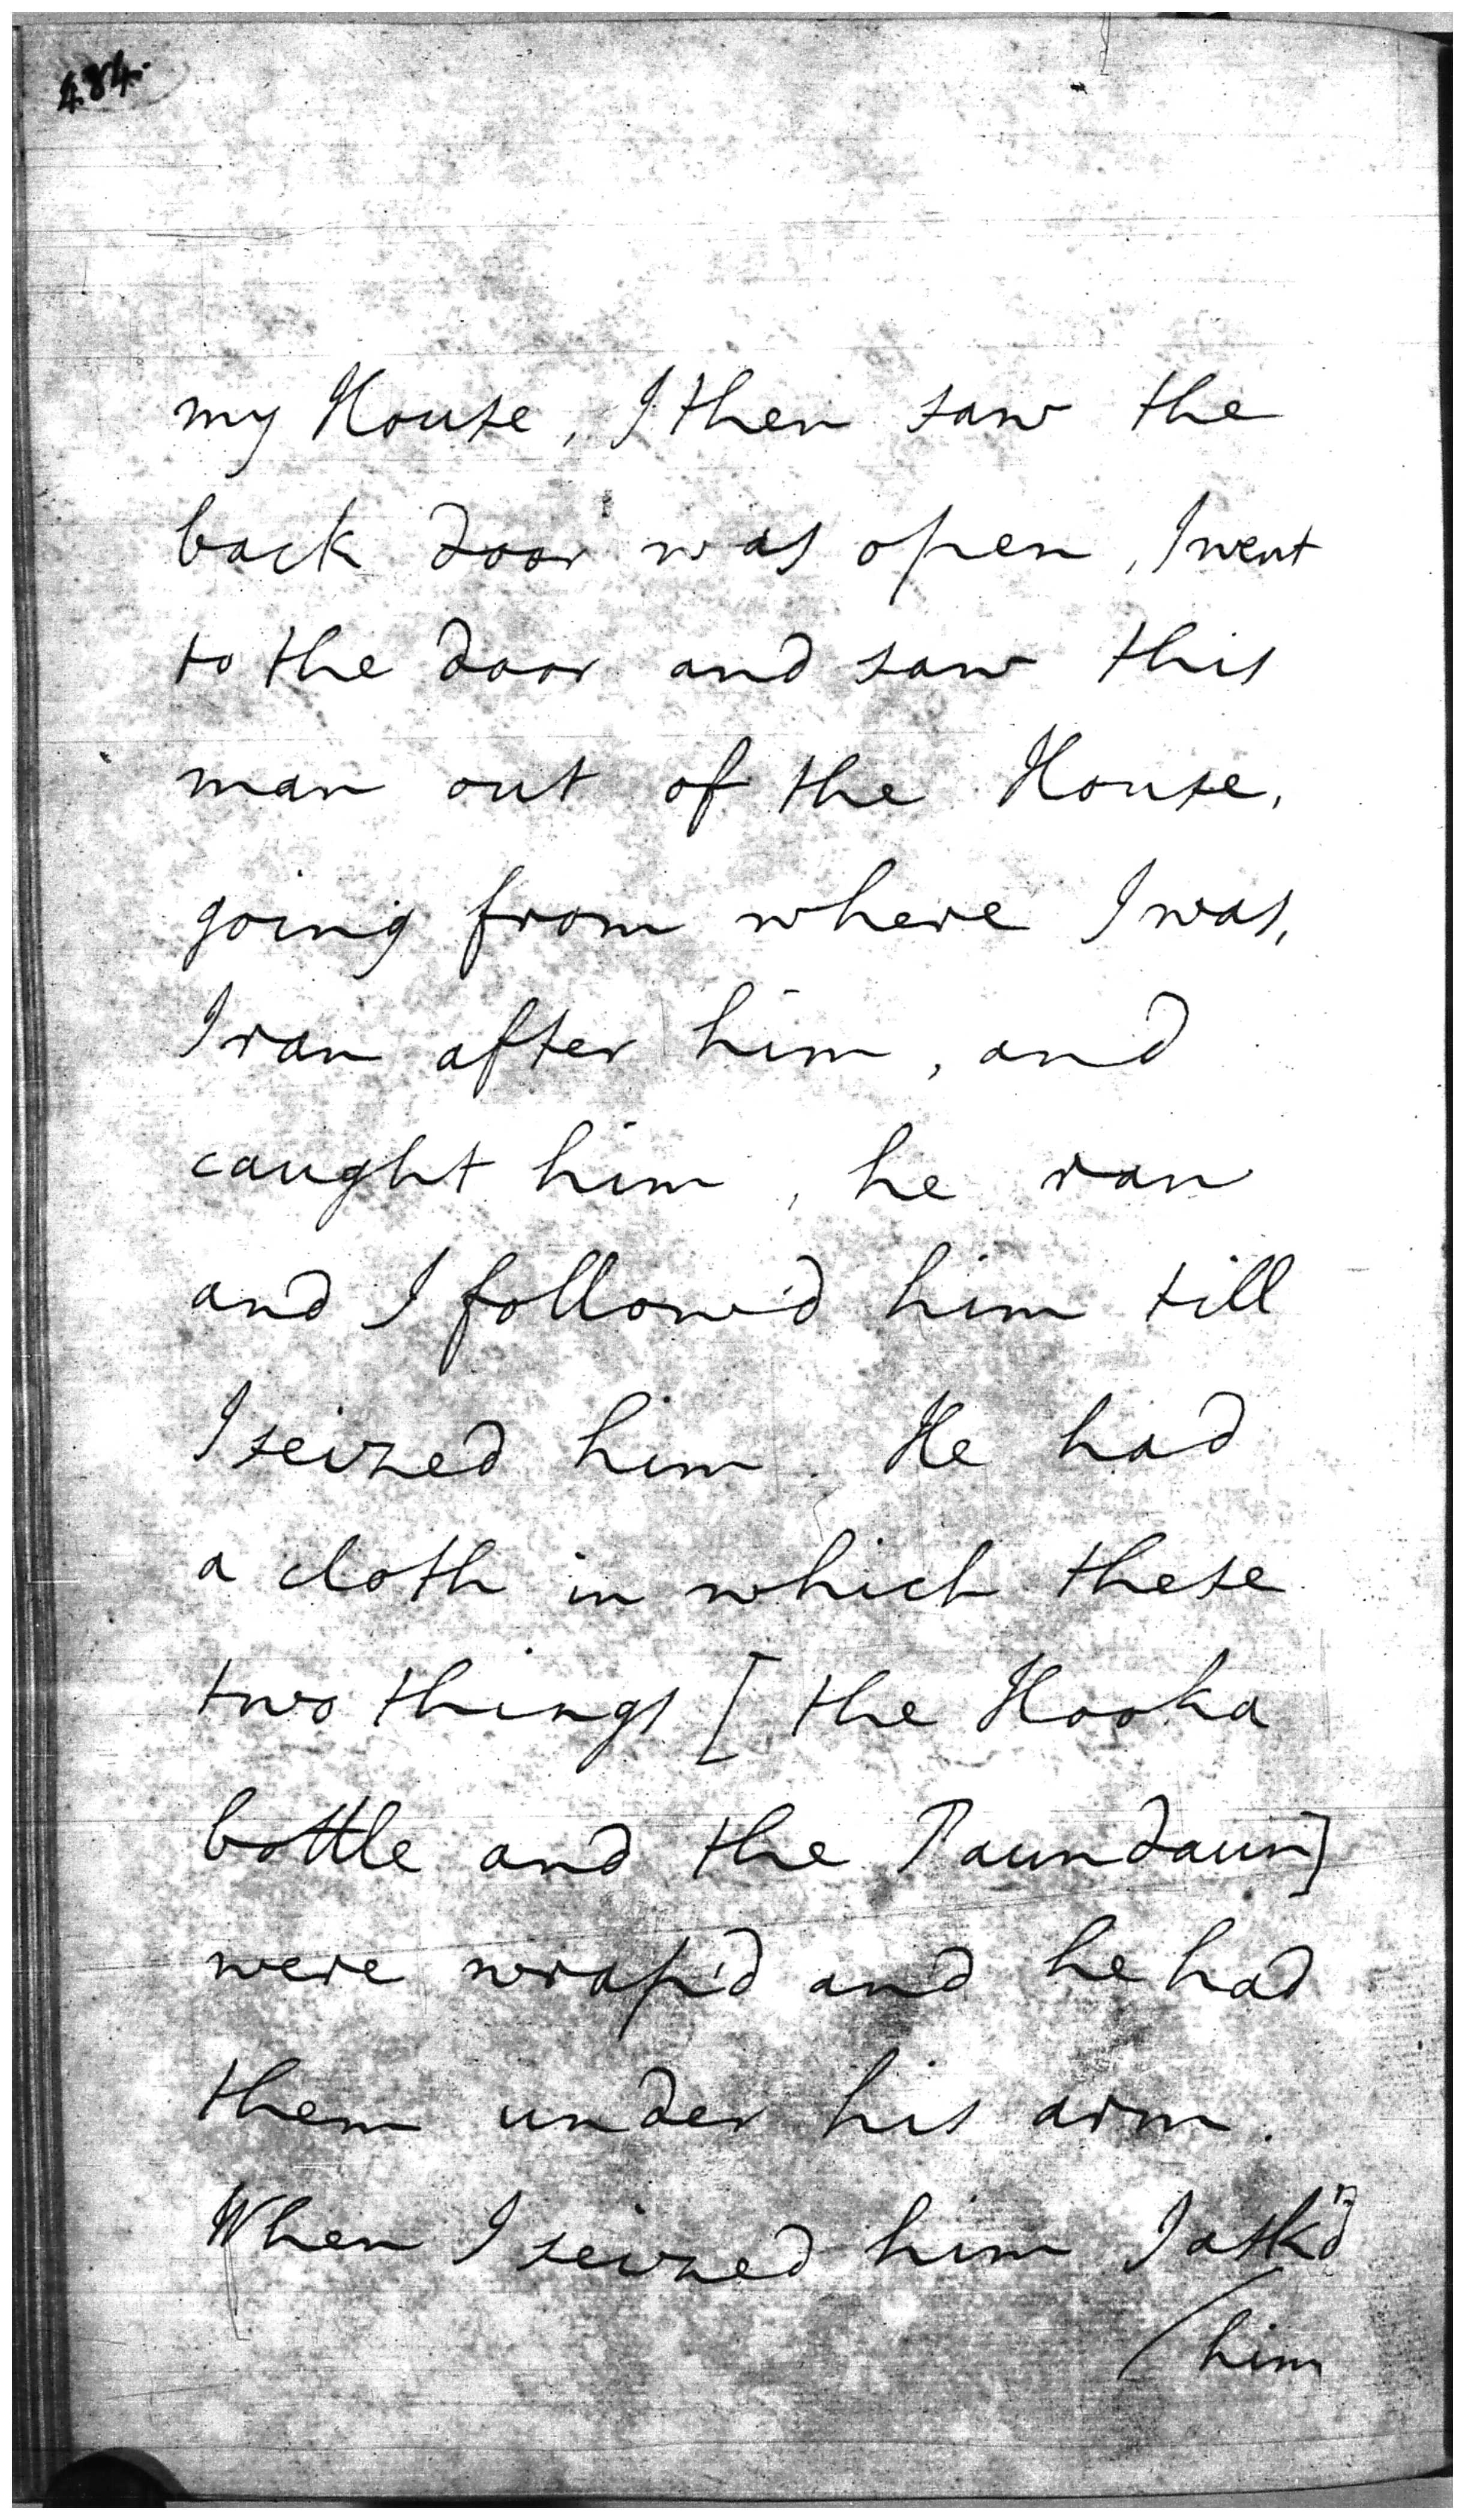 484.
my House, I then saw the
back door was open, I went
to the door and saw this
man out of the House,
going from where I was,
I ran after him, and
caught him, he ran
and I follow'd him till
I seized him. He had
a cloth in which these
two things [ the Hooka
bottle and the Paundaun]
were wrap'd and he had
them under his arm.
When I seized him I ask'd
him